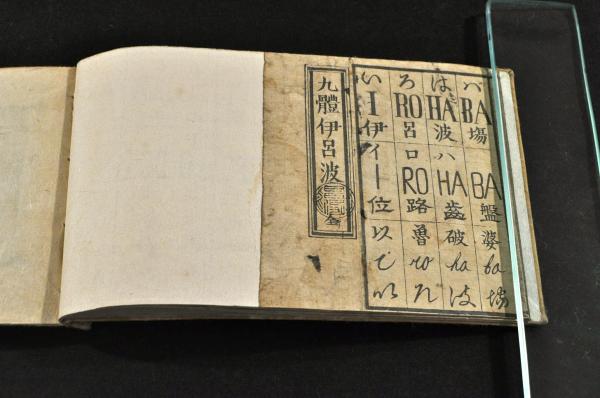 九體伊呂波
全
い I 伊 イ I 位 以
ろ RO 呂 ロ RO 路 魯 ro
は HA 波 ハ HA 齒 破 ha は
バ BA 場 BA 盤 婆 ba 場